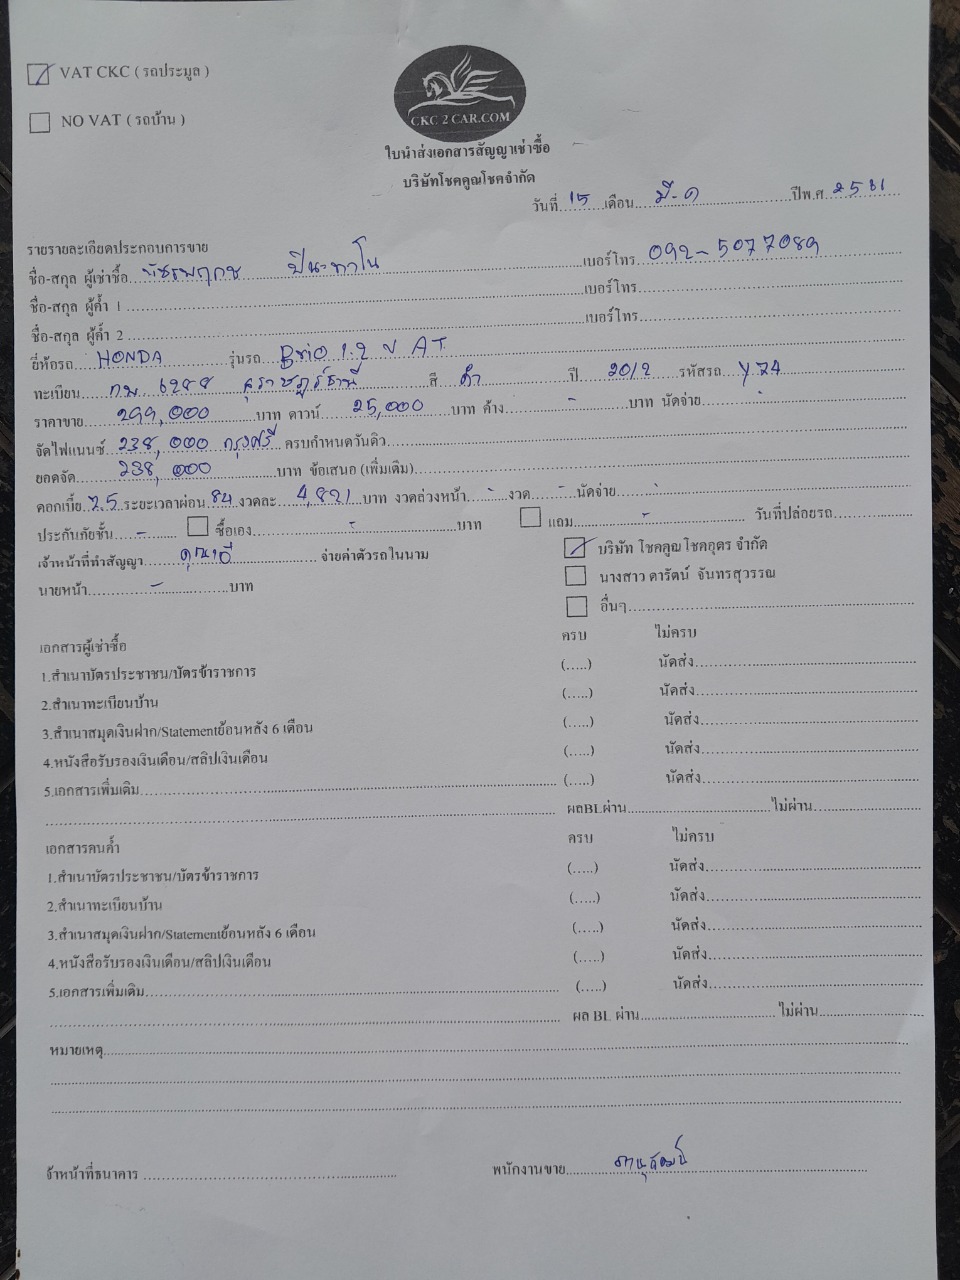 VAT CKC ( รถประมูล )
NO VAT ( รถบ้าน )
CKC 2 CAR.COM
ใบนำส่งเอกสารสัญญาเช่าซื้อ
บริษัทโชคคูณโชคจำกัด
วันที่ 15 เดือน มี.ค ปีพ.ศ 25
รายรายละเอียดประกอบการขาย
ชื่อ-สกุล ผู้เช่าซื้อ พัชรพฤกษ ปินะทาโน เบอร์โทร 092-5077089
ชื่อ-สกุล ผู้ค้ำ 1 เบอร์โทร
ชื่อ-สกุล ผู้ค้ำ 2 เบอร์โทร
ยี่ห้อรถ HONDA รุ่นรถ Brio 1.2 V AT
ทะเบียน กม 6288 สุราษฎร์ธานี สี ดำ ปี 2012 รหัสรถ Y.74
ราคาขาย 299,000 บาท ดาวน์ 25,000 บาท ค้าง - บาท นัดจ่าย -
จัดไฟแนนซ์ 238,000 กรุงศรี ครบกำหนดวันดิว
ยอดจัด 238,000 บาท ข้อเสนอ (เพิ่มเติม)
ดอกเบี้ย 7.5 ระยะเวลาผ่อน 84 งวดละ 4,821 บาท งวดล่วงหน้า - งวด - นัดจ่าย -
ประกันภัยชั้น - ซื้อเอง - บาท แถม - วันที่ปล่อยรถ
เจ้าหน้าที่ทำสัญญา จ่ายค่าตัวรถในนาม บริษัท โชคคูณโชคอุดร จำกัด
นายหน้า - บาท นางสาว ดารัตน์ จันทรสุวรรณ
อื่นๆ
เอกสารผู้เช่าซื้อ ครบ ไม่ครบ
1.สำเนาบัตรประชาชน/บัตรข้าราชการ (.....) นัดส่ง
2.สำเนาทะเบียนบ้าน (.....) นัดส่ง
3.สำเนาสมุดเงินฝาก/Statementย้อนหลัง 6 เดือน (.....) นัดส่ง
4.หนังสือรับรองเงินเดือน/สลิปเงินเดือน (.....) นัดส่ง
5.เอกสารเพิ่มเติม (.....) นัดส่ง
ผลBLผ่าน ไม่ผ่าน
เอกสารคนค้ำ ครบ ไม่ครบ
1.สำเนาบัตรประชาชน/บัตรข้าราชการ (.....) นัดส่ง
2.สำเนาทะเบียนบ้าน (.....) นัดส่ง
3.สำเนาสมุดเงินฝาก/Statementย้อนหลัง 6 เดือน (.....) นัดส่ง
4.หนังสือรับรองเงินเดือน/สลิปเงินเดือน (.....) นัดส่ง
5.เอกสารเพิ่มเติม (.....) นัดส่ง
ผล BL ผ่าน ไม่ผ่าน
หมายเหตุ
จ้าหน้าที่ธนาคาร พนักงานขาย